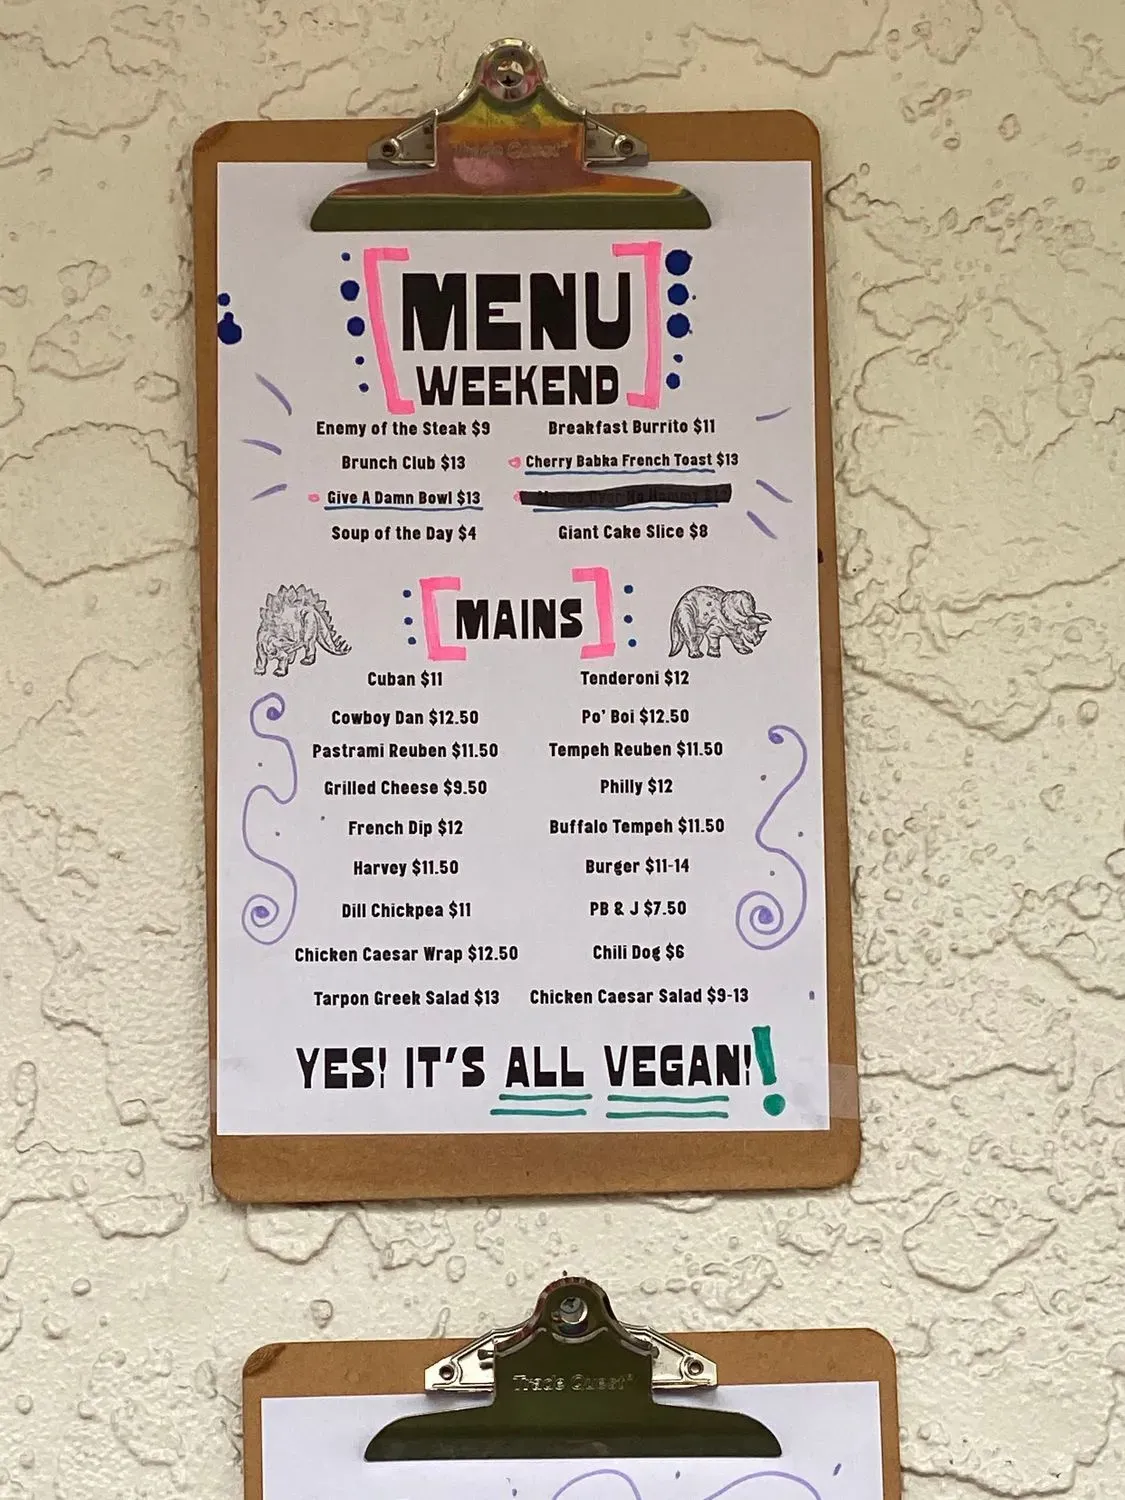 Trade Quest
MENU
WEEKEND
Enemy of the Steak $9
Breakfast Burrito $11
Brunch Club $13
Cherry Babka French Toast $13
Give A Damn Bowl $13
Soup of the Day $4
Giant Cake Slice $8
MAINS
Cuban $11
Tenderoni $12
Cowboy Dan $12.50
Po' Boi $12.50
Pastrami Reuben $11.50
Tempeh Reuben $11.50
Grilled Cheese $9.50
Philly $12
French Dip $12
Buffalo Tempeh $11.50
Harvey $11.50
Burger $11-14
Dill Chickpea $11
PB & J $7.50
Chicken Caesar Wrap $12.50
Chili Dog $6
Tarpon Greek Salad $13
Chicken Caesar Salad $9-13
YES! IT'S ALL VEGAN!!
Trade Quest